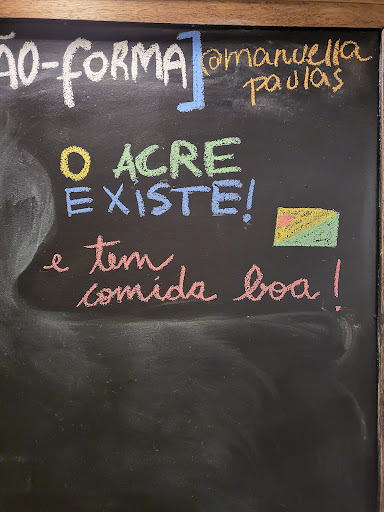 ÃO-FORMA] @manuella
paulas
O ACRE
EXISTE!
e tem
comida boa!